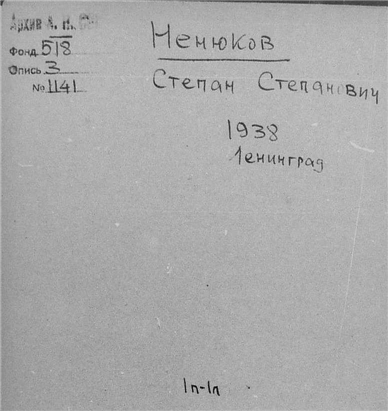 Архив А. Н.
Фонд 518
Опись 3
№ 1141
Ненюков
Степан Степанович
1938
Ленинград
1п-1п